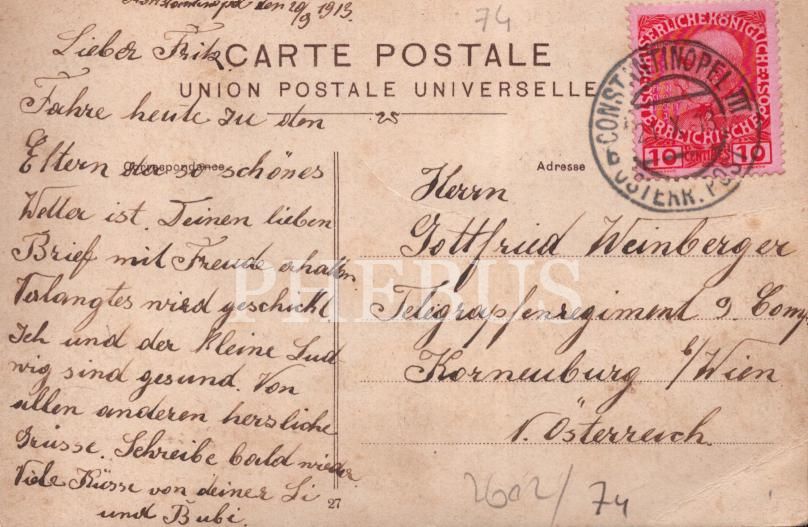 Konstantinopel den 29/9 1913.
74
Lieber Fritz.
CARTE POSTALE
UNION POSTALE UNIVERSELLE
Fahre heute zu den
25
Eltern der so schönes
Correspondance
Wetter ist. Deinen lieben
Brief mit Freude erhalten
Valangtes wird geschickt
Ich und der kleine Lud
wig sind gesund. Von
allen anderen herzliche
Grüsse. Schreibe bald wieder
Viele Küsse von deiner Li
und Bubi.
27
Adresse
Herrn
Gottfried Weinberger
Telegrapfenregiment 9. Comp
Korneuburg b/Wien
N. Österreich.
2602/74
KAISERLICHE KÖNIGLICHE
ÖSTERREICHISCHE POST
10 CENTIMES 10
CONSTANTINOPEL III
ÖSTERR. POST
PHEBUS